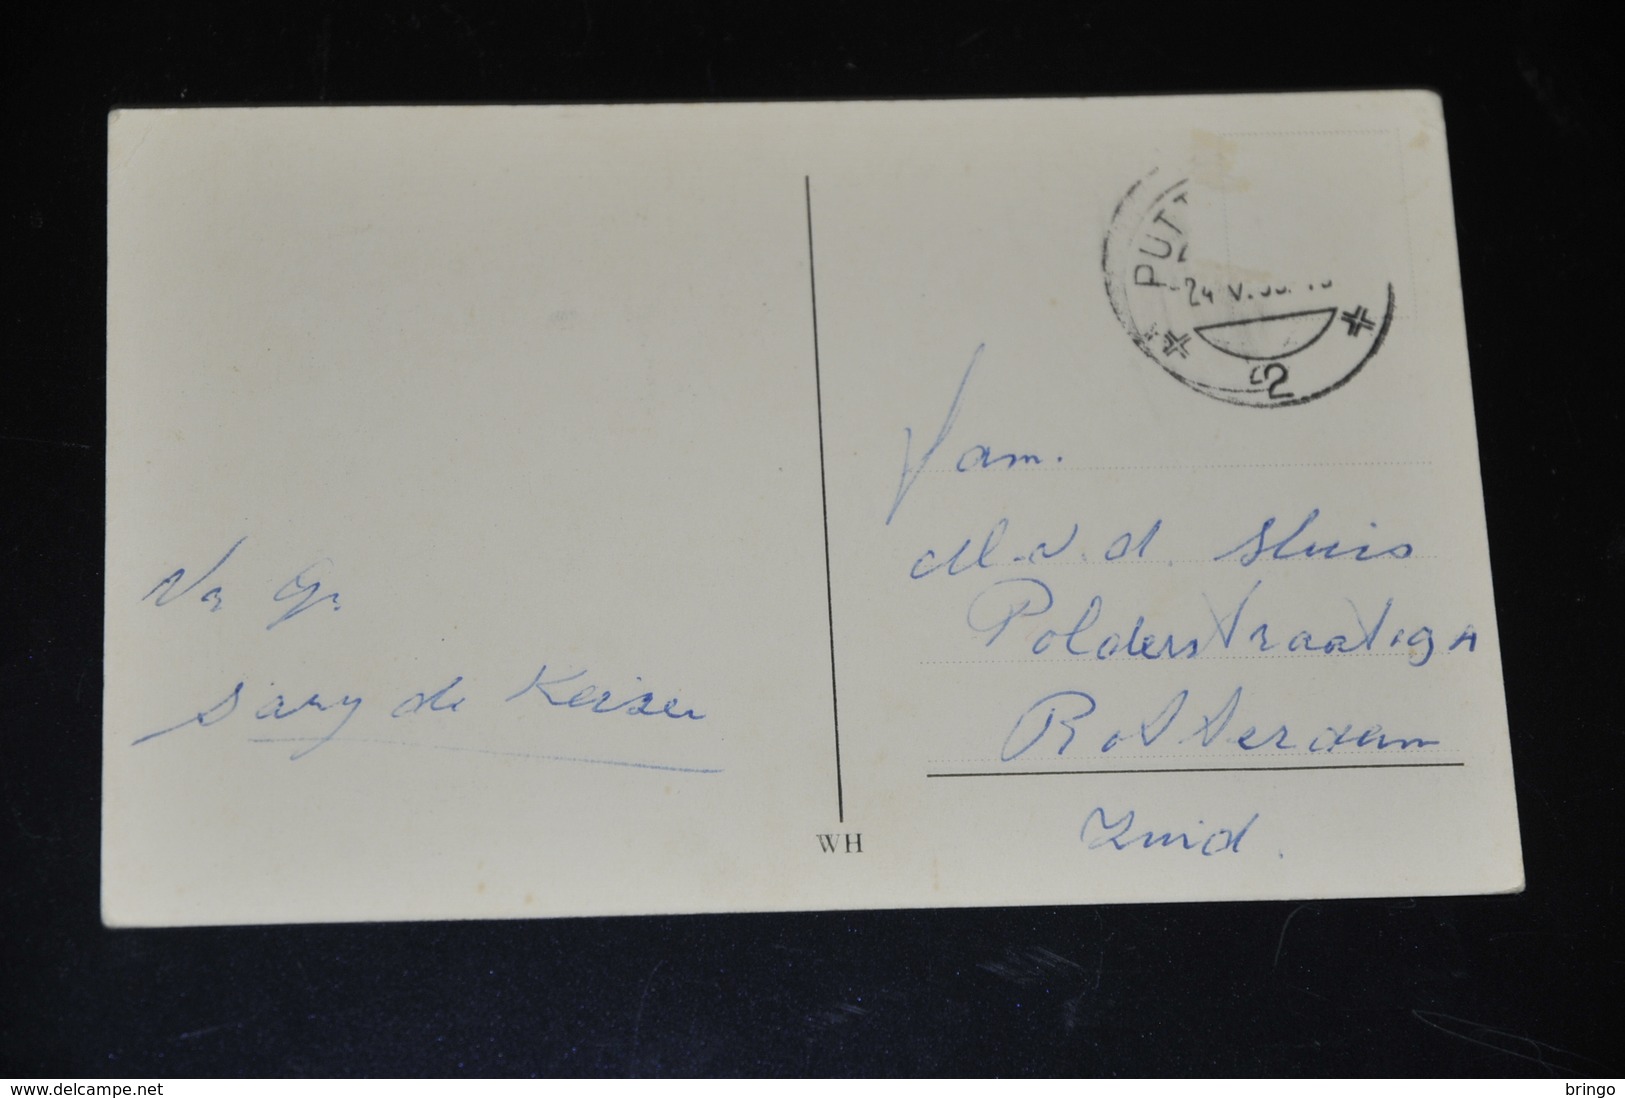 PUTT
-24 V.
2
Fam.
M.v.d. Sluis
Polderstraat 19A
Rotterdam
Zuid.
Va. Gr.
Sary de Keizer
WH
delcampe.net
bringo